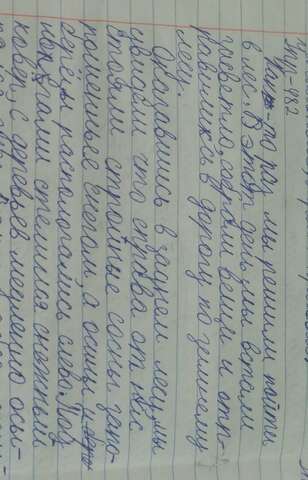 Упр-482
Как-то раз мы решили пойти
в лес. В этот день мы встали
до светло, собрали вещи и отп-
равились в дорогу по зимнему
лесу.
Оказавшись в зимнем лесу, мы
увидели что справа от нас
стояли стройные сосны запо-
рошенные снегом, а осины и
берёзы распологались слева. Под
ногами стелился снежный
ковёр, с деревьев медленно осы-